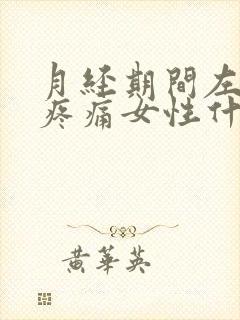 月经期間左
疼痛女性什
黄華英